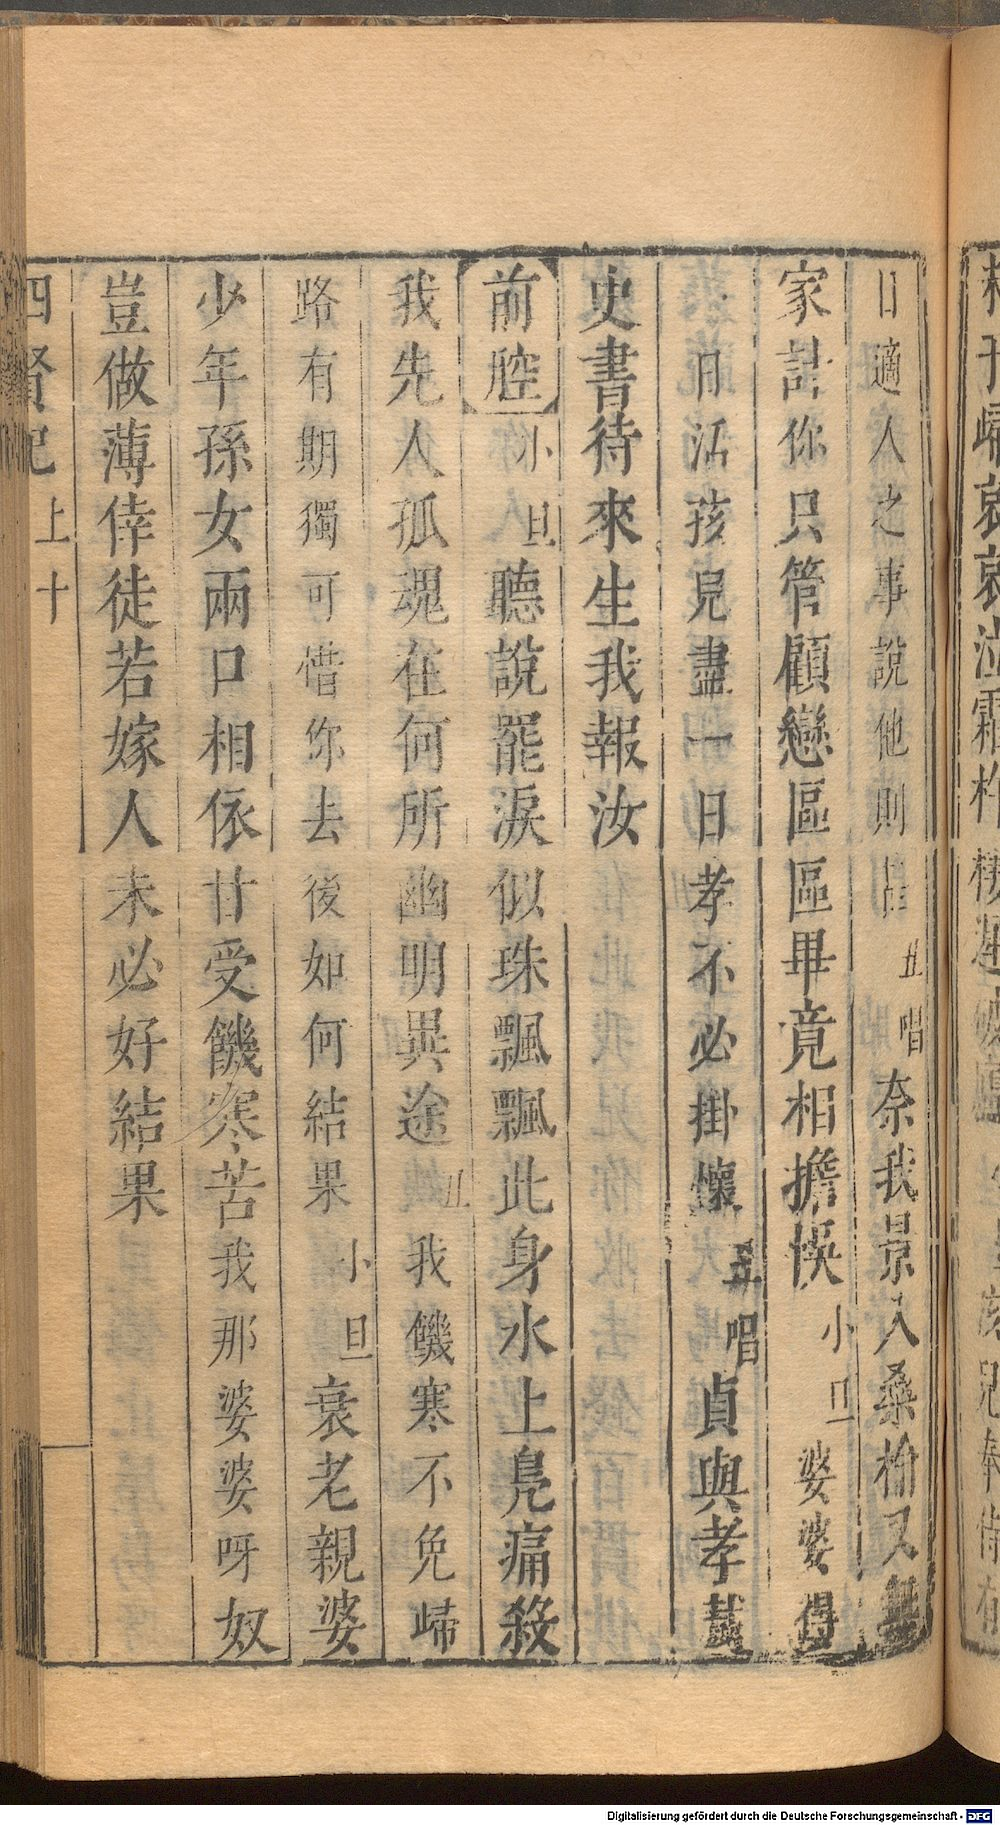 日適人之事說他則甚丑唱奈我景入桑榆又無
家計你只管顧戀區區畢竟相擔悞小旦婆婆得
一日活孩兒盡一日孝不必掛懷丑唱貞與孝
史書待來生我報汝
前腔小旦聽說罷淚似珠飄飄此身水上鳧痛殺
我先人孤魂在何所幽明異途丑我饑寒不免歸
路有期獨可惜你去後如何結果小旦衰老親婆
少年孫女兩口相依甘受饑寒苦我那婆婆呀奴
豈做薄倖徒若嫁人未必好結果
四賢記 上 十
Digitalisierung gefördert durch die Deutsche Forschungsgemeinschaft - DFG